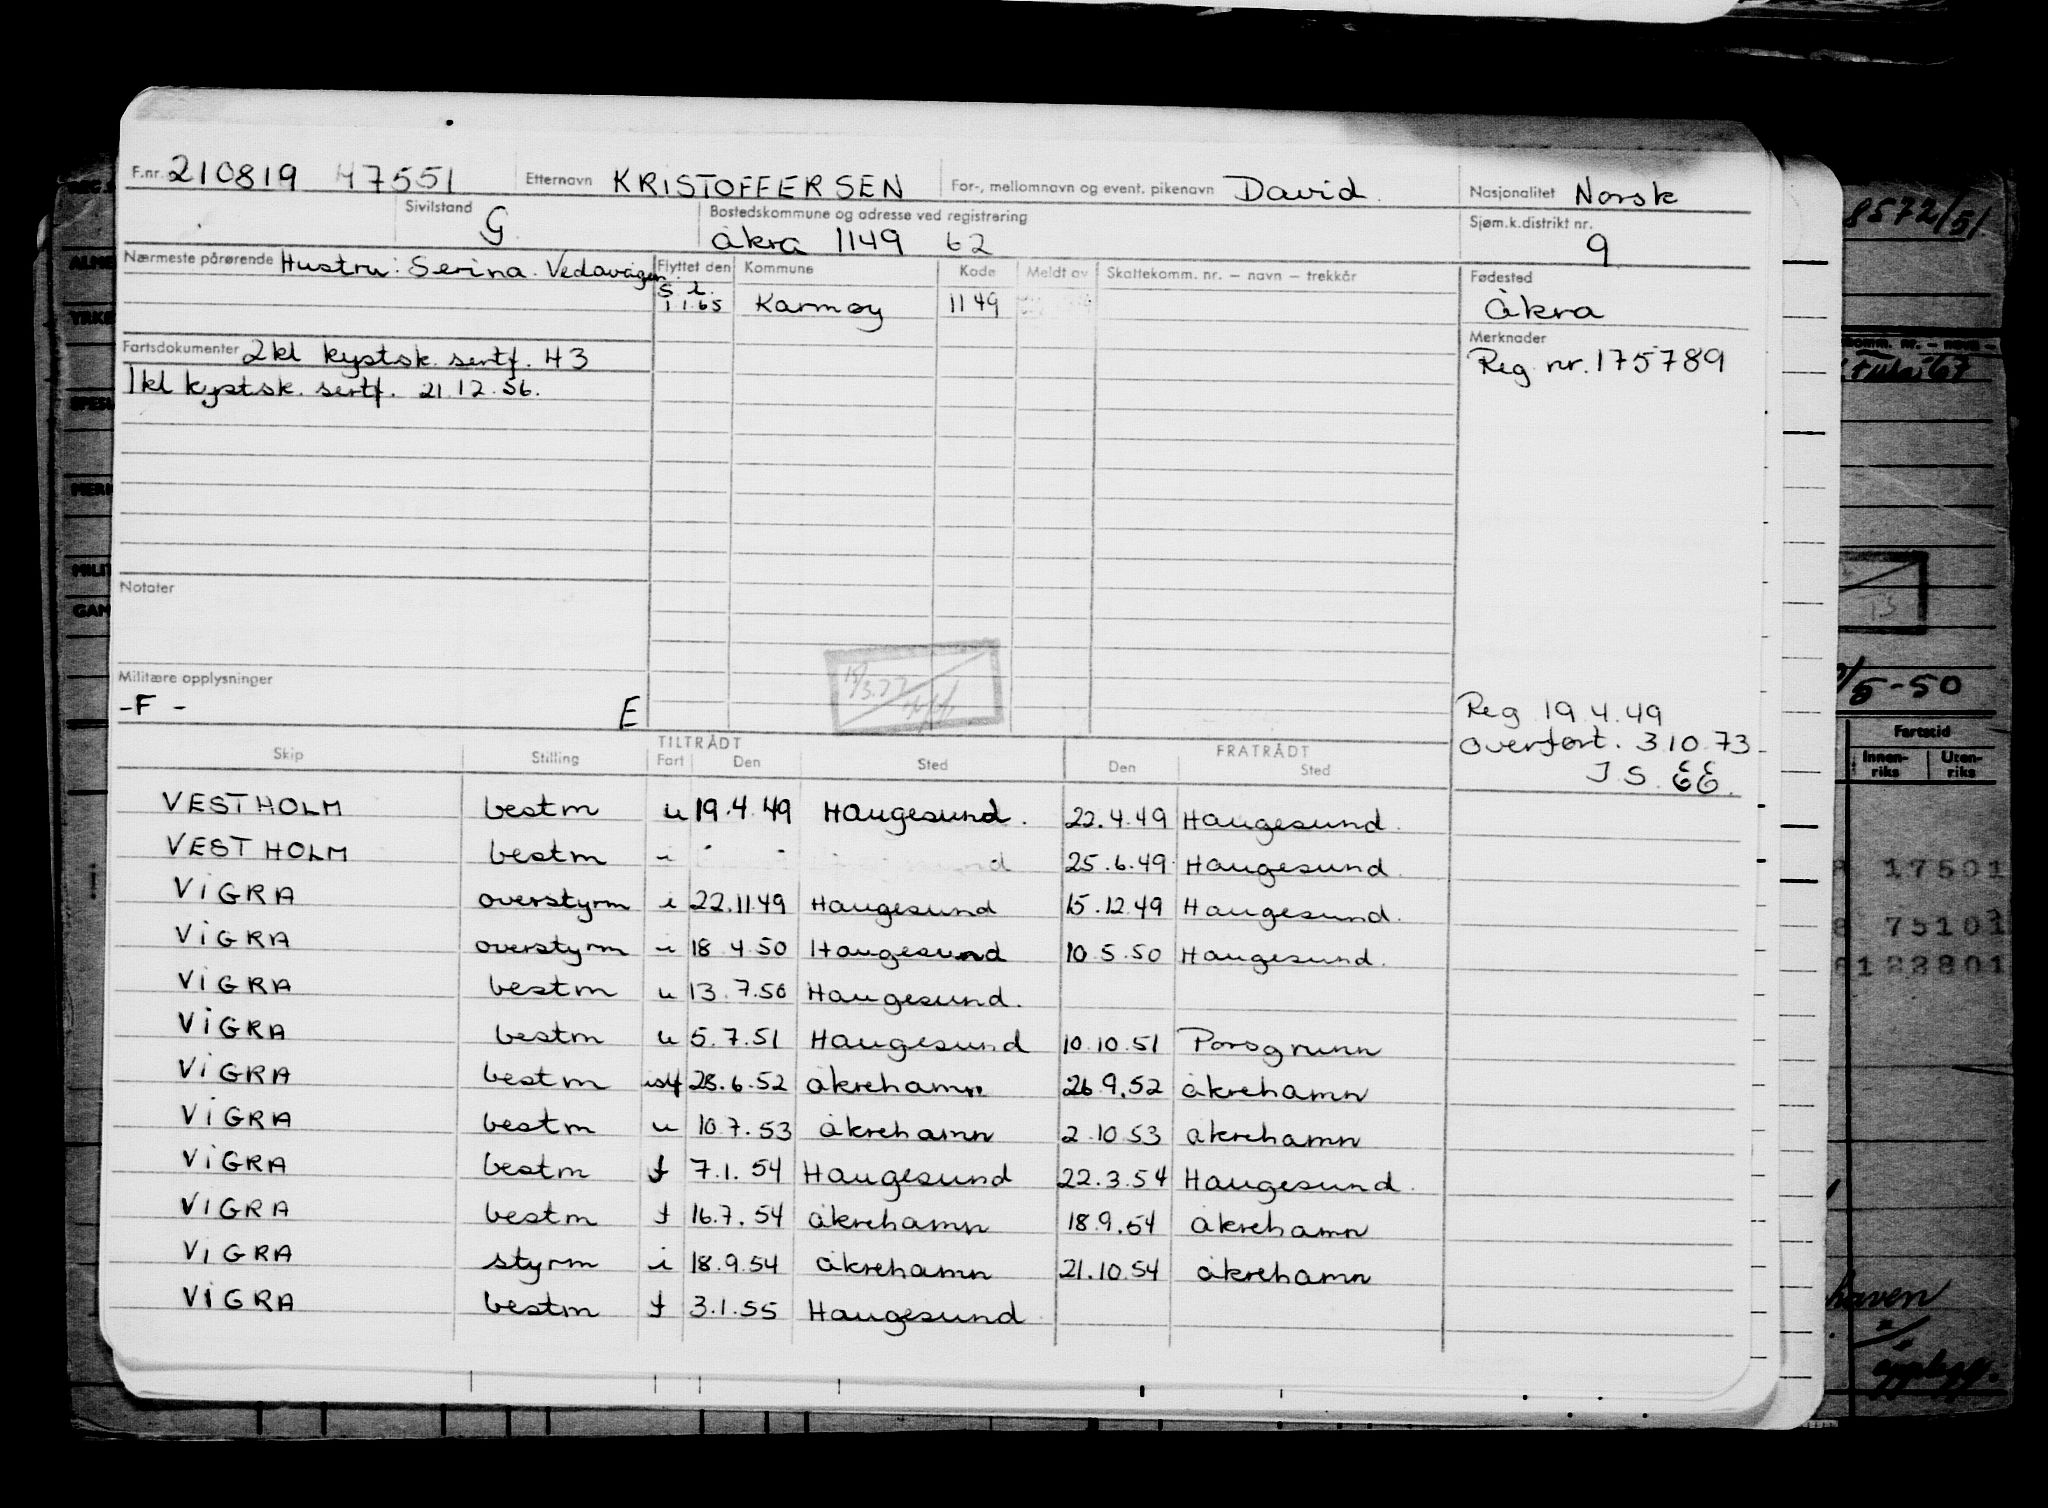 F.nr. 210819 47551 Etternavn KRISTOFFERSEN For-, mellomnavn og event. pikenavn David. Nasjonalitet Norsk
Sivilstand G Bostedskommune og adresse ved registrering Åkra 1149 62 Sjøm.k.distrikt nr. 9
Nærmeste pårørende Hustru: Serina. Vedavågen. Flyttet den Kommune Kode Meldt av Skattekomm. nr. – navn – trekkår Fødested
1.1.65 Karmøy 1149 Åkra
Fartsdokumenter 2kl kystsk. sertf. 43 Merknader
1kl kystsk. sertf. 21.12.56. Reg. nr. 175789
Notater
Militære opplysninger
-F - E
Reg 19.4.49
overført. 3.10.73
Skip Stilling TILTRÅDT Fart Den Sted FRATRÅDT Den Sted
VESTHOLM bestm u 19.4.49 Haugesund. 22.4.49 Haugesund.
VESTHOLM bestm i 25.6.49 Haugesund.
VIGRA overstyrm i 22.11.49 Haugesund 15.12.49 Haugesund.
VIGRA overstyrm i 18.4.50 Haugesund 10.5.50 Haugesund.
VIGRA bestm u 13.7.50 Haugesund.
VIGRA bestm u 5.7.51 Haugesund 10.10.51 Porsgrunn
VIGRA bestm 28.6.52 åkrehamn 26.9.52 åkrehamn
VIGRA bestm u 10.7.53 åkrehamn 2.10.53 åkrehamn
VIGRA bestm f 7.1.54 Haugesund 22.3.54 Haugesund.
VIGRA bestm f 16.7.54 åkrehamn 18.9.54 åkrehamn
VIGRA styrm i 18.9.54 åkrehamn 21.10.54 åkrehamn
VIGRA bestm f 3.1.55 Haugesund
8572/51
5-50
Fartstid
Innenriks Utenriks
17501
75107
8123801